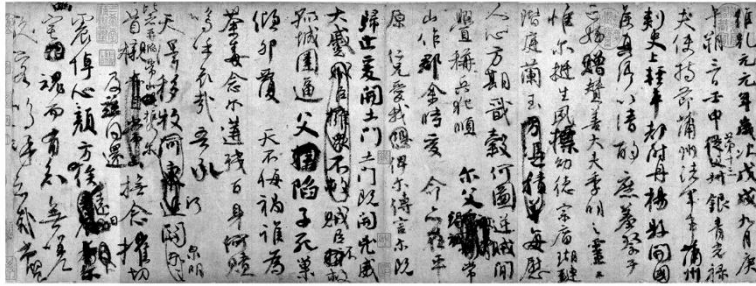 維乾元元年歲次戊戌九月庚
午朔三日壬申第十三叔銀青光祿
夫使持節蒲州諸軍事蒲州
刺史上輕車都尉丹陽縣開國
侯真卿以清酌庶羞祭于
亡姪贈贊善大夫季明之靈曰
惟爾挺生夙標幼德宗廟瑚璉
階庭蘭玉方憑積善每慰
人心方期戩穀何圖逆賊閒
釁稱兵犯順爾父竭誠常
山作郡余時受命亦在平
原仁兄愛我俾爾傳言爾既
歸止爰開土門土門既開凶威
大蹙賊臣擁眾不救賊臣不救
孤城圍逼父陷子死巢
傾卵覆天不悔禍誰為
荼毒念爾遘殘百身何贖
嗚呼哀哉吾承
天澤移牧河東近河關泉明
比者再陷常山攜爾
首櫬及茲同還撫念摧切
震悼心顏方俟遠日
幽宅魂而有知無嗟
久客嗚呼哀哉尚饗